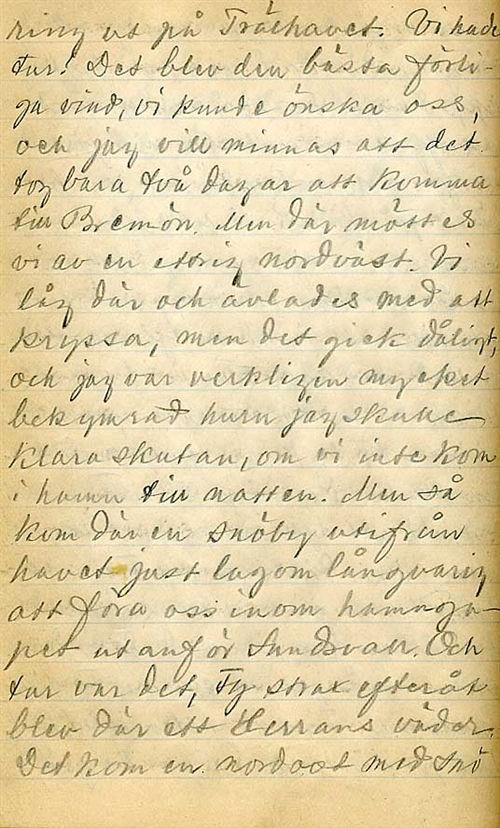 ring ut på Trälhavet. Vi hade
tur! Det blev den bästa förli-
ga vind, vi kunde önska oss,
och jag vill minnas att det
tog bara två dagar att komma
till Bremön. Men där möttes
vi av en ettrig nordväst. Vi
låg där och avlades med att
kryssa, men det gick dåligt,
och jag var verkligen mycket
bekymrad huru jag skulle
klara skutan, om vi inte kom
i hamn till natten. Men så
kom där en snöby utifrån
havet just lagom långvarig
att föra oss inom hamnga-
pet utanför Sundsvall. Och
tur var det, Ty strax efteråt
blev där ett Herrans väder.
Det kom en nordost med Snö